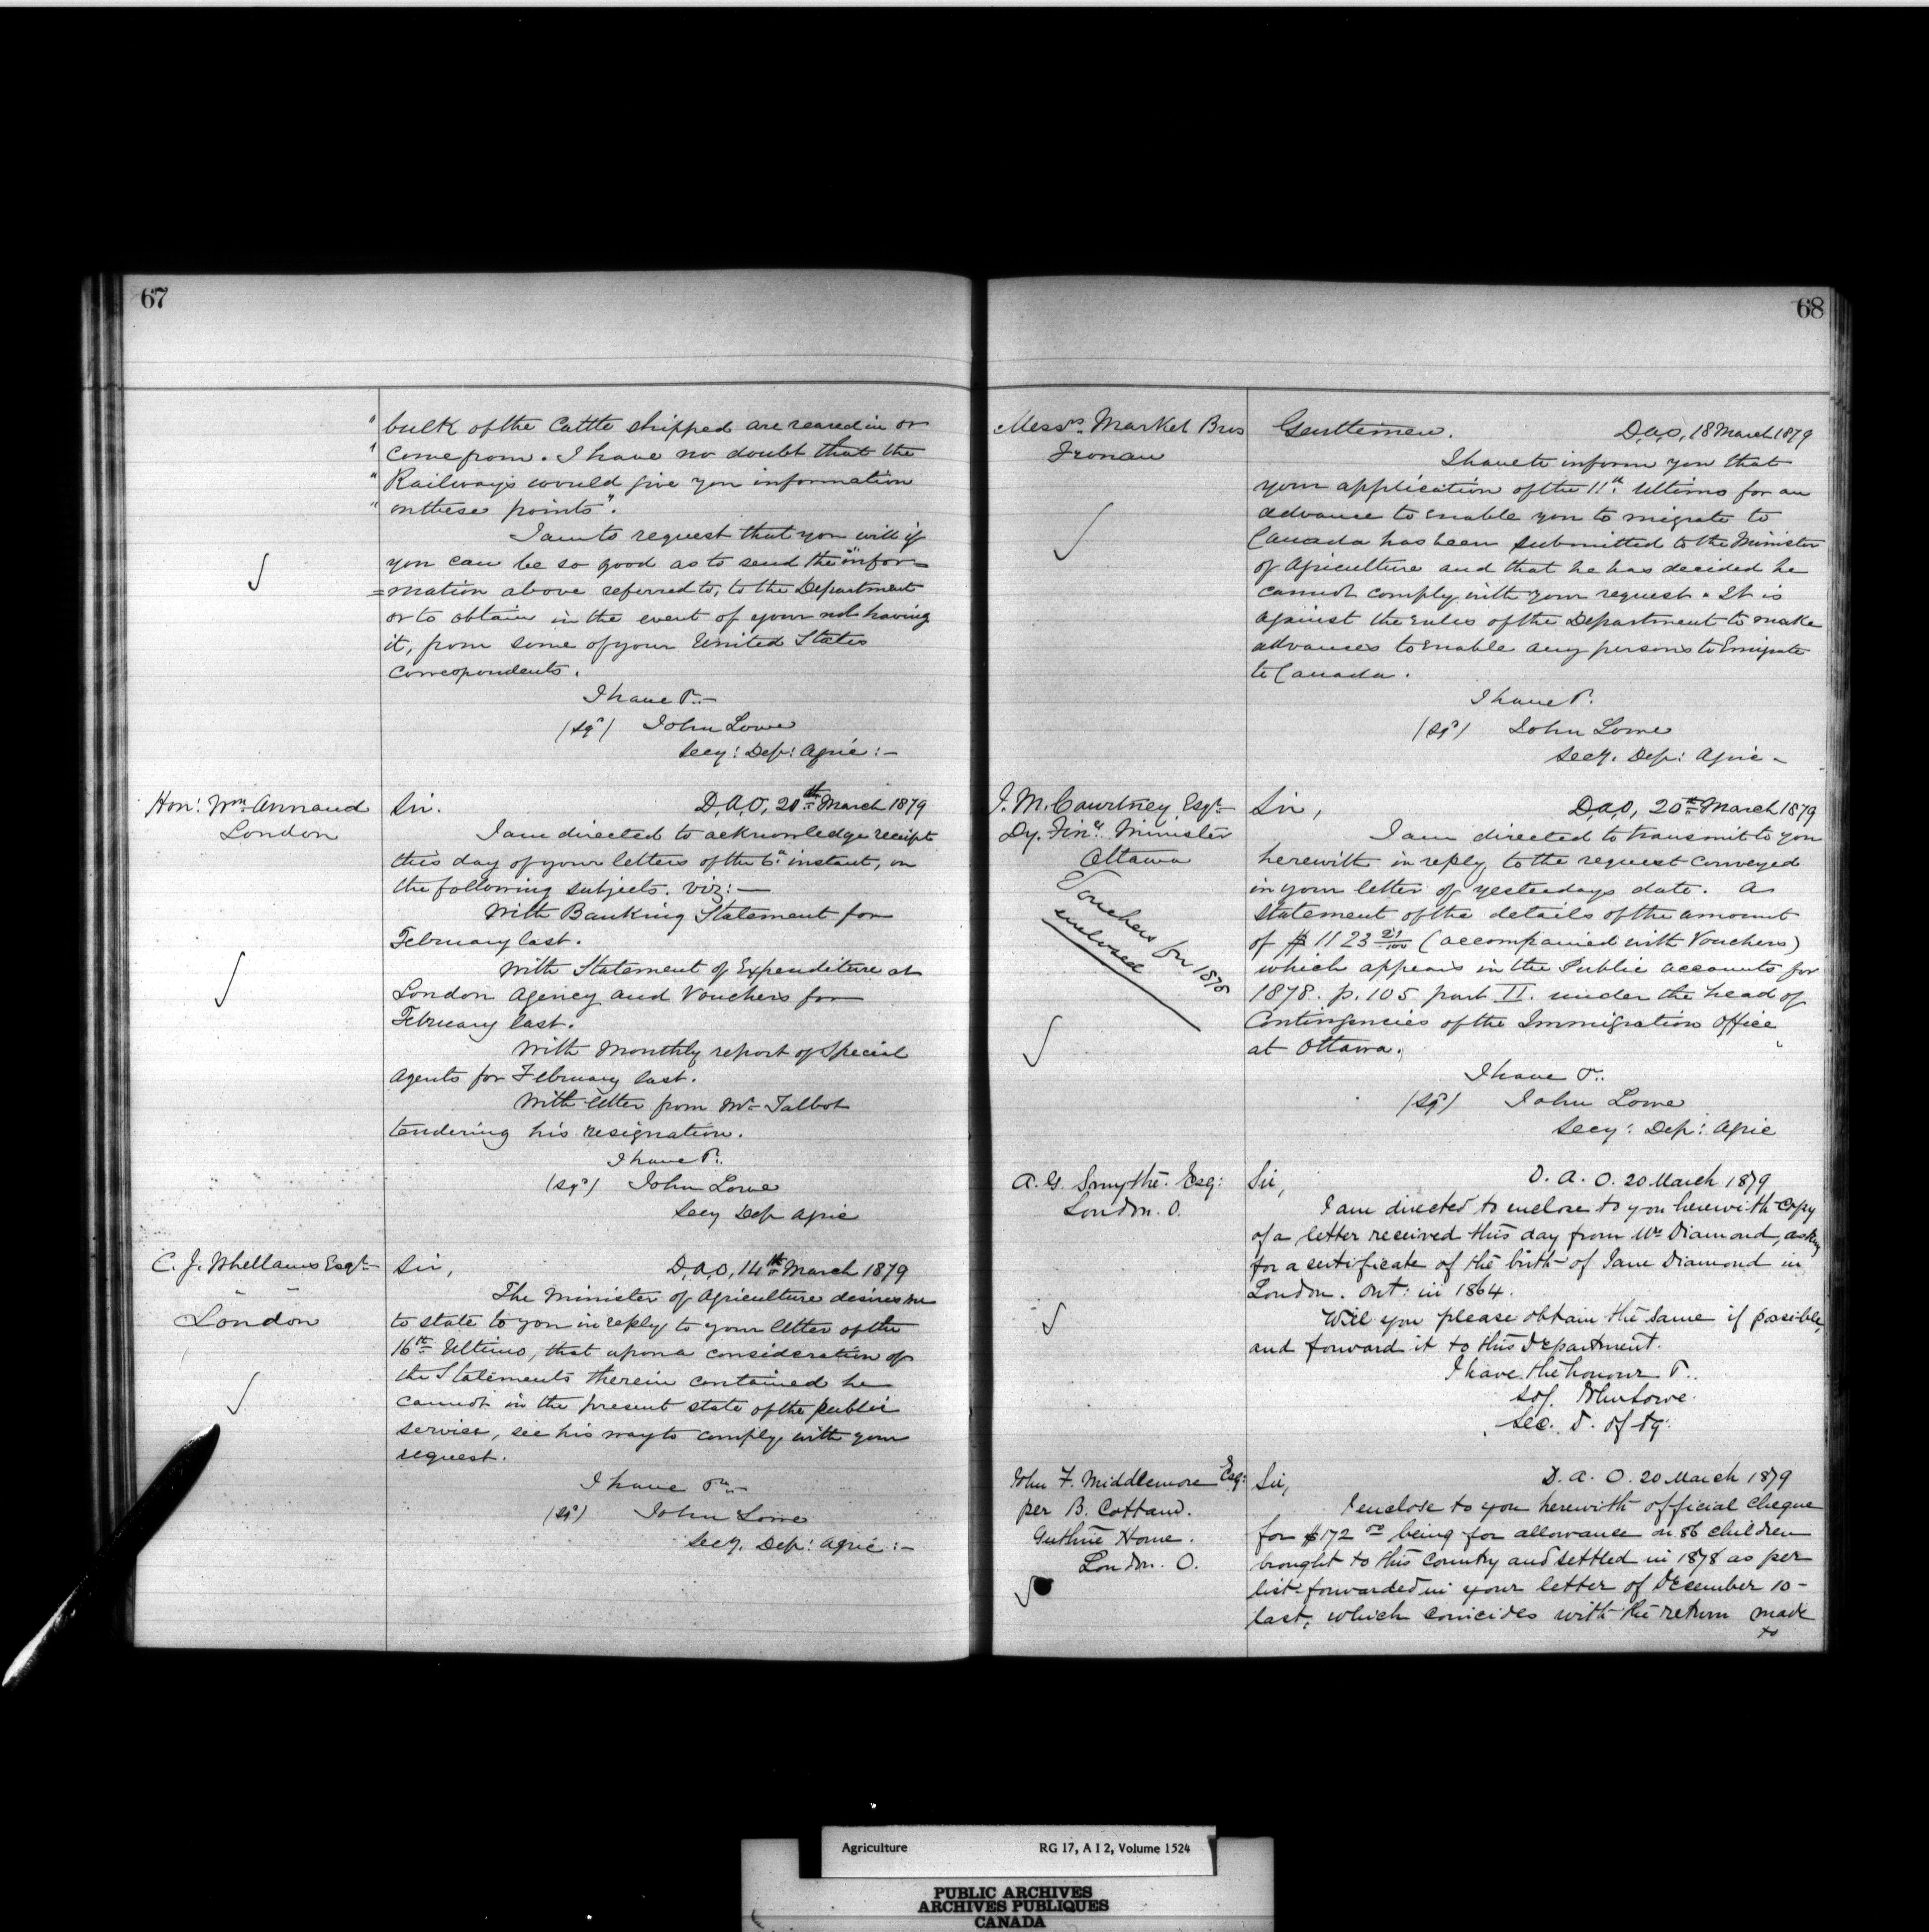 67
" bulk of the Cattle shipped are reared in or
" come from. I have no doubt that the
" Railways would give you information
" on these points".
I am to request that you will if
you can be so good as to send the "infor=
=mation above referred to, to the Department
or to obtain in the event of your not having
it, from some of your United States
Correspondents.
I have &c:-
(sgd) John Lowe
Secy: Dep: Agric:-
Hon: Wm Annand
London
Sir. D,A,O, 20th March 1879
I am directed to acknowledge receipt
this day of your letters of the 6th instant, on
the following subjects. viz:—
With Banking Statement for
February last.
With Statement of Expenditure at
London Agency and Vouchers for
February last.
With Monthly report of Special
Agents for February last.
With letter from Mr Talbot
tendering his resignation.
I have &c:.
(sgd) John Lowe
Secy Dep Agric
C. J. Whellams Esqre
London
Sir, D,A,O, 14th March 1879
The Minister of Agriculture desires me
to state to you in reply to your letter of the
16th Ultimo, that upon a consideration of
the Statements therein contained he
cannot in the present state of the public
service, see his way to comply with your
request.
I have &c:-
(sgd) John Lowe
Secy. Dep: Agric:-
68
Messrs. Market Bros
Gentlemen. D,a,o, 18 March 1879
I have to inform you that
your application of the 11th Ultimo for an
advance to enable you to migrate to
Canada has been submitted to the Minister
of Agriculture and that he has decided he
cannot comply with your request. It is
against the rules of the Department to make
advances to enable any persons to Emigrate
to Canada.
I have &c:
(sgd) John Lowe
Secy. Dep: Agric-
J. M. Courtney Esqre
Dy. Fince Minister
Ottawa
Vouchers for 1878
enclosed
Sir, D,a,o, 20th March 1879
I am directed to transmit to you
herewith in reply to the request conveyed
in your letter of yesterdays date. A
statement of the details of the amount
of $1123 21/100 (accompanied with Vouchers)
which appears in the Public accounts for
1878. p. 105 part II. under the head of
Contingencies of the Immigration Office
at Ottawa.
I have &c:.
(sgd) John Lowe
Secy: Dep: Agric
A. G. Smythe. Esq:
London. O.
Sir, D. A. O. 20 March 1879
I am directed to enclose to you herewith copy
of a letter received this day from Mr Diamond, asking
for a certificate of the birth of Jane Diamond in
London. Ont: in 1864.
Will you please obtain the same if possible,
and forward it to this Department.
I have the honour &c.
sd/. John Lowe.
Sec. D. of Ag:
John F. Middlemore Esq:
per B. Cottam.
Guthrie Home.
London. O.
Sir, D. A. O. 20 March 1879
I enclose to you herewith official cheque
for $172 00 being for allowance on 86 children
brought to this Country and settled in 1878 as per
list forwarded in your letter of December 10-
last, which coincides with the return made
to
Agriculture RG 17, A I 2, Volume 1524
PUBLIC ARCHIVES
ARCHIVES PUBLIQUES
CANADA